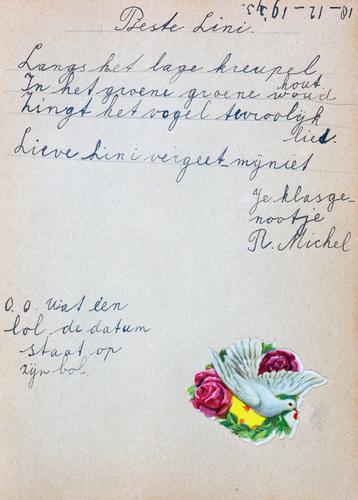 18-12-1943.
Beste Lini.
Langs het lage kreupel
hout
In het groene groene woud
Zingt het vogel tevroolijk
lied.
Lieve Lini vergeet mijniet
Je klasge-
nootje
R. Michel
O. O. Wat één
lol de datum
staat op
zijn bol.